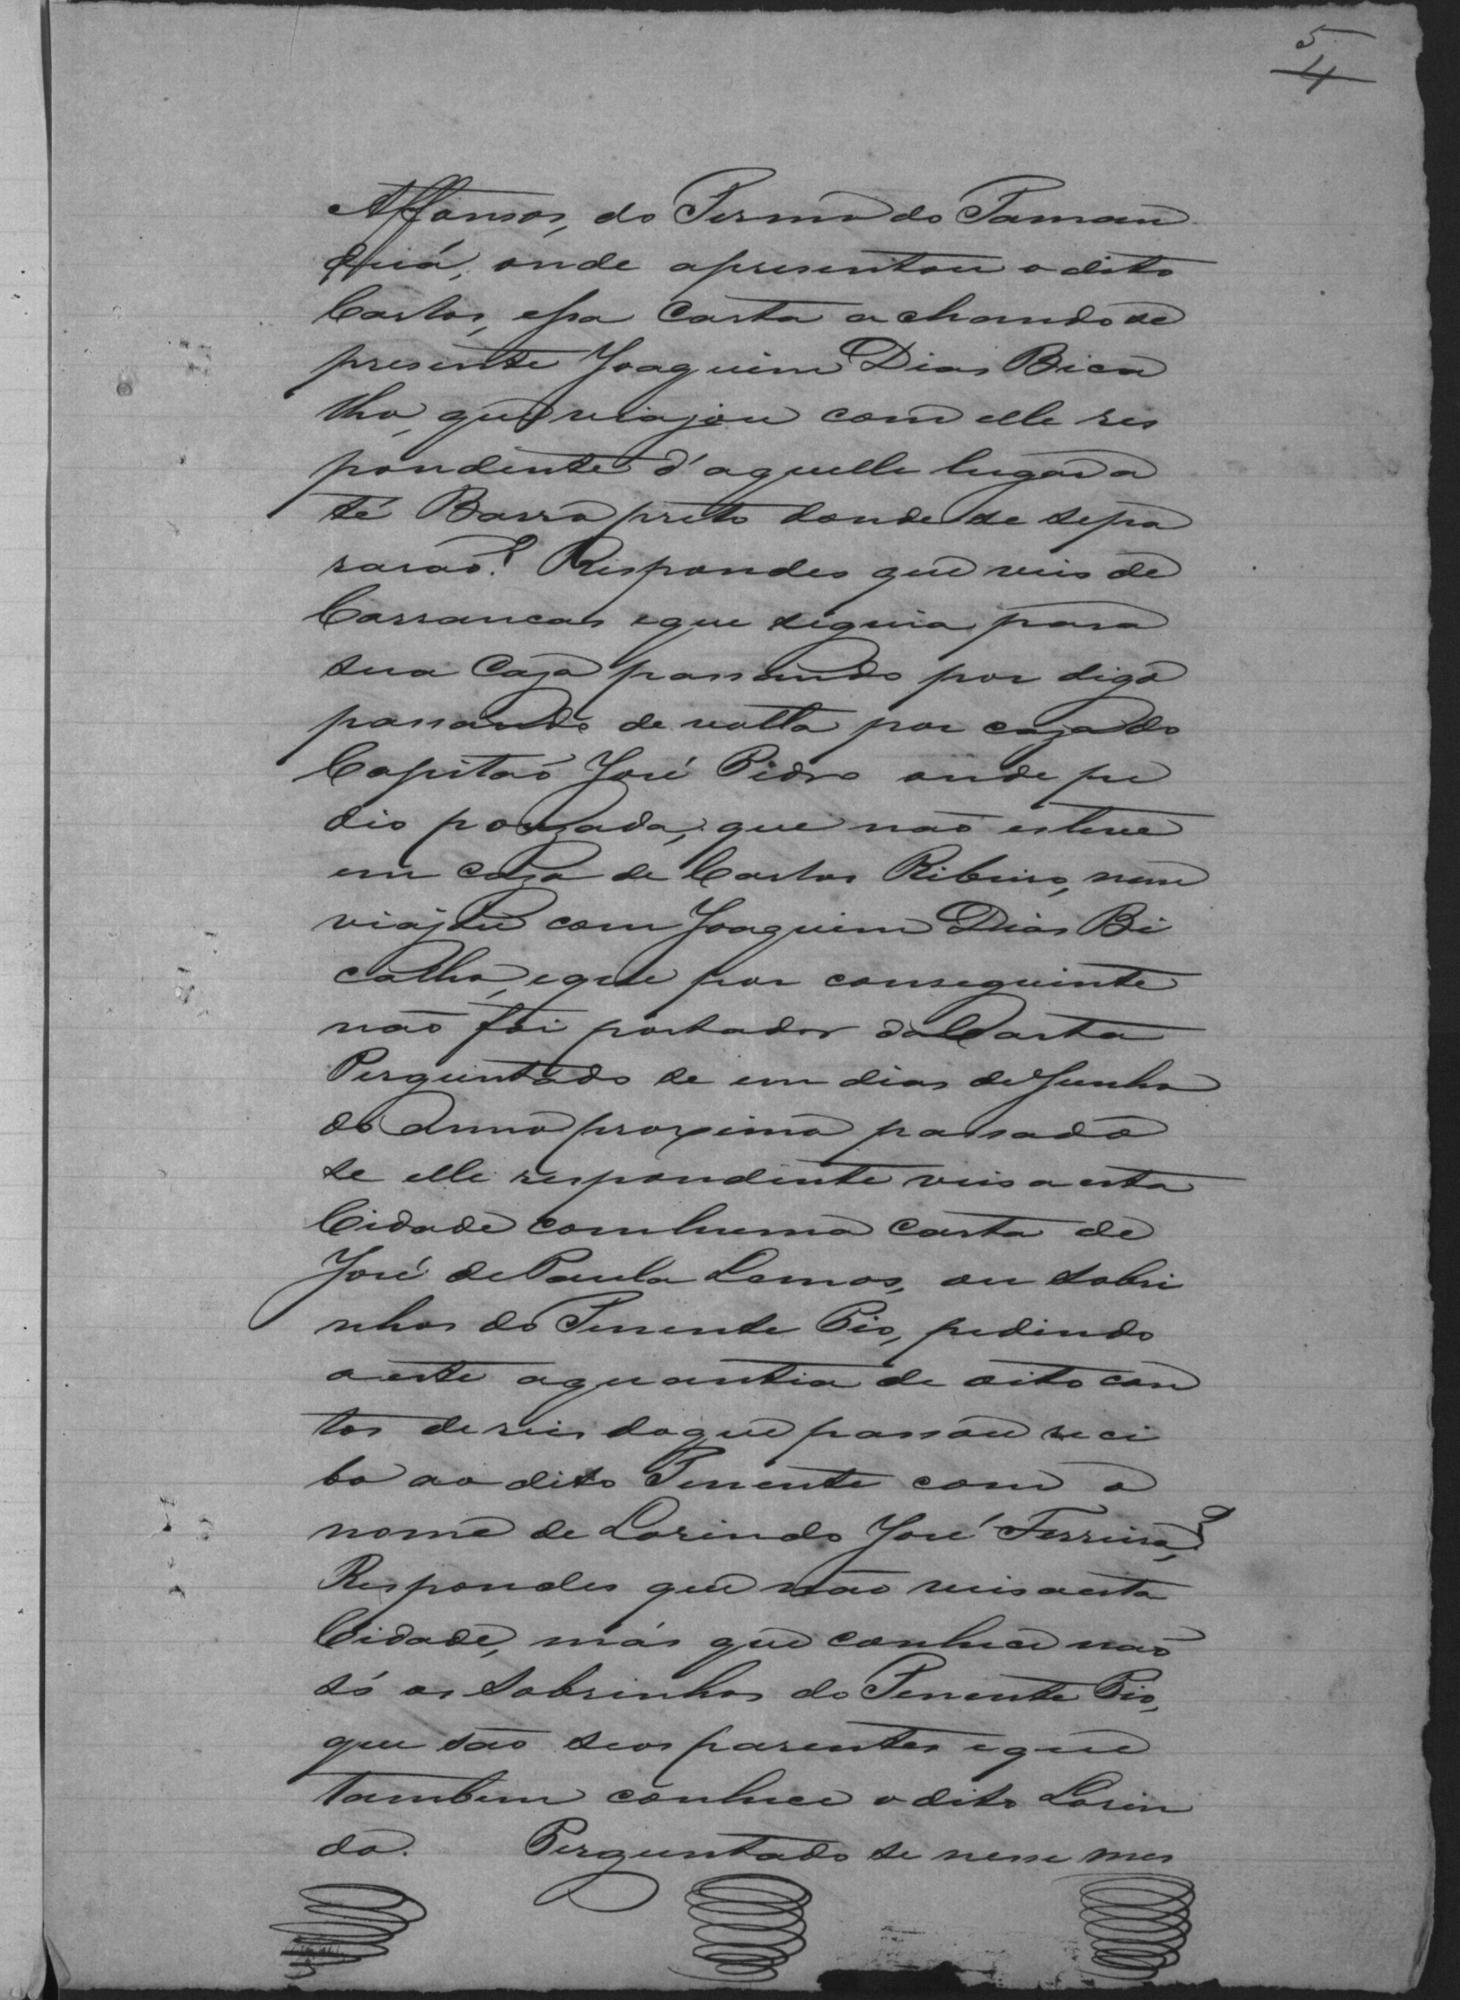 5
4
Affonsos, do Termo do Taman
duá, onde apresentou o dito
Carlos, essa Carta achando se
presente Joaquim Dias Bica
lho, que viajou com elle res
pondente d'aquelle lugar a
té Barro preto donde se sepa
rarão? Respondeo que veio de
Carrancas e que seguia para
sua Caza passando por digo
passando de volta por caza do
Capitão José Pedro onde pe
dio pouzada, que não esteve
em caza de Carlos Ribeiro, nem
viajou com Joaquim Dias Bi
calho, e que por conseguinte
não foi portador da Carta
Perguntado se em dias de Junho
do Anno proximo passado
se elle respondente veio a esta
Cidade com huma carta de
José de Paula Lemos, ou sobri
nhos do Tenente Pio, pedindo
a este a quantia de oito con
tos de reis do que passou reci
bo ao dito Tenente com o
nome de Lorindo José Ferreira,?
Respondeo que não veio a esta
Cidade, más que conhece não
só os Sobrinhos do Tenente Pio,
que são seos parentes e que
tambem conhece o dito Lorin
do. Perguntado se nesse mes